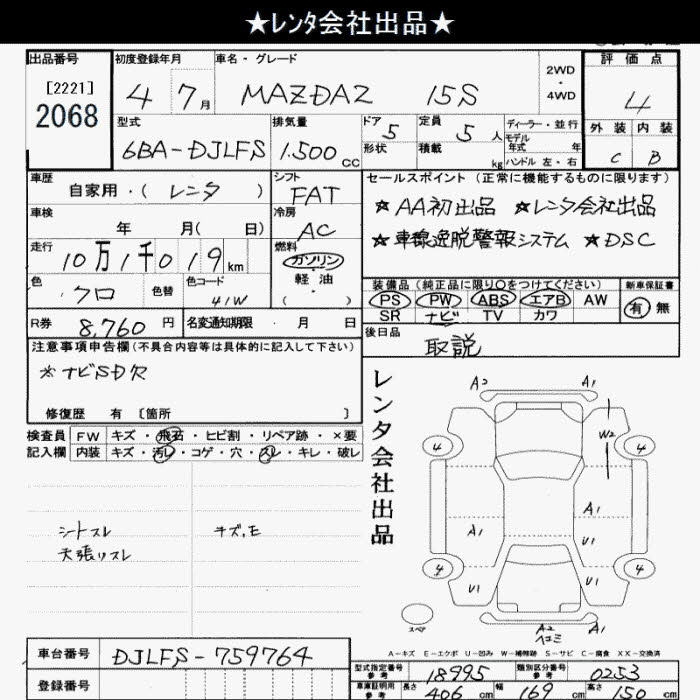 ★レンタ会社出品★
出品番号
[2221]
2068
初度登録年月
4 7月
車名・グレード
MAZDA2 15S
2WD
・
4WD
評価点
4
外装 内装
C B
型式
6BA-DJLFS
排気量
1.500cc
ドア 5
形状
定員 5人
積載 kg
ディーラー・並行
モデル
年式 年
ハンドル 左・右
車歴
自家用・(レンタ)
シフト
FAT
車検
年 月( 日)
冷房
AC
走行
10万1千019km
燃料
ガソリン
・
軽油
( )
色
クロ
色替
色コード
41W
R券
8,760円
名変通知期限 月 日
セールスポイント(正常に機能するものに限ります)
★AA初出品 ★レンタ会社出品
★車線逸脱警報システム ★DSC
装備品(純正品に限り○をつけてください)
PS PW ABS エアB AW
SR ナビ TV カワ
新車保証書
有 無
後日品
取説
注意事項申告欄(不具合内容等は具体的に記入して下さい)
※ナビSD欠
修復歴 有〔箇所 〕
検査員
記入欄
FW キズ・飛石・ヒビ割・リペア跡・×要
内装 キズ・汚レ・コゲ・穴・スレ・キレ・破レ
シートスレ
天張りスレ
キズ、モ
レンタ会社出品
A2 A1
4 W2 4
A1
A1 U1
4 U1 U1 4
スペア
A2 A1
ヘコミ
A-キズ E-エクボ U-凹み W-補修跡 S-サビ C-腐食 XX-交換済
車台番号
DJLFS-759764
登録番号
型式指定番号
参考
18995
類別区分番号
参考
0253
車庫証明用
参考
長さ 406cm 幅 169cm 高さ 150cm